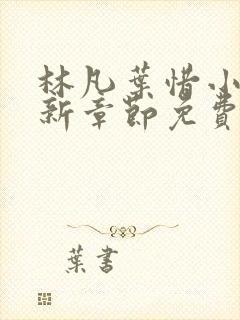 林凡葉惜小
新章節免費
葉書